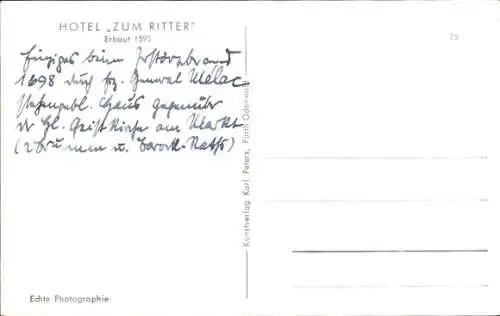 HOTEL „ZUM RITTER"
Erbaut 1592
Einziges beim Zerstörgsbrand
1698 durch frz. General Mélac
stehengebl. Haus gegenüber
der Hl. Geistkirche am Markt
(2 Brunnen u. Barock-Raths)
75
Kunstverlag Karl Peters, Fürth Odenwald
Echte Photographie